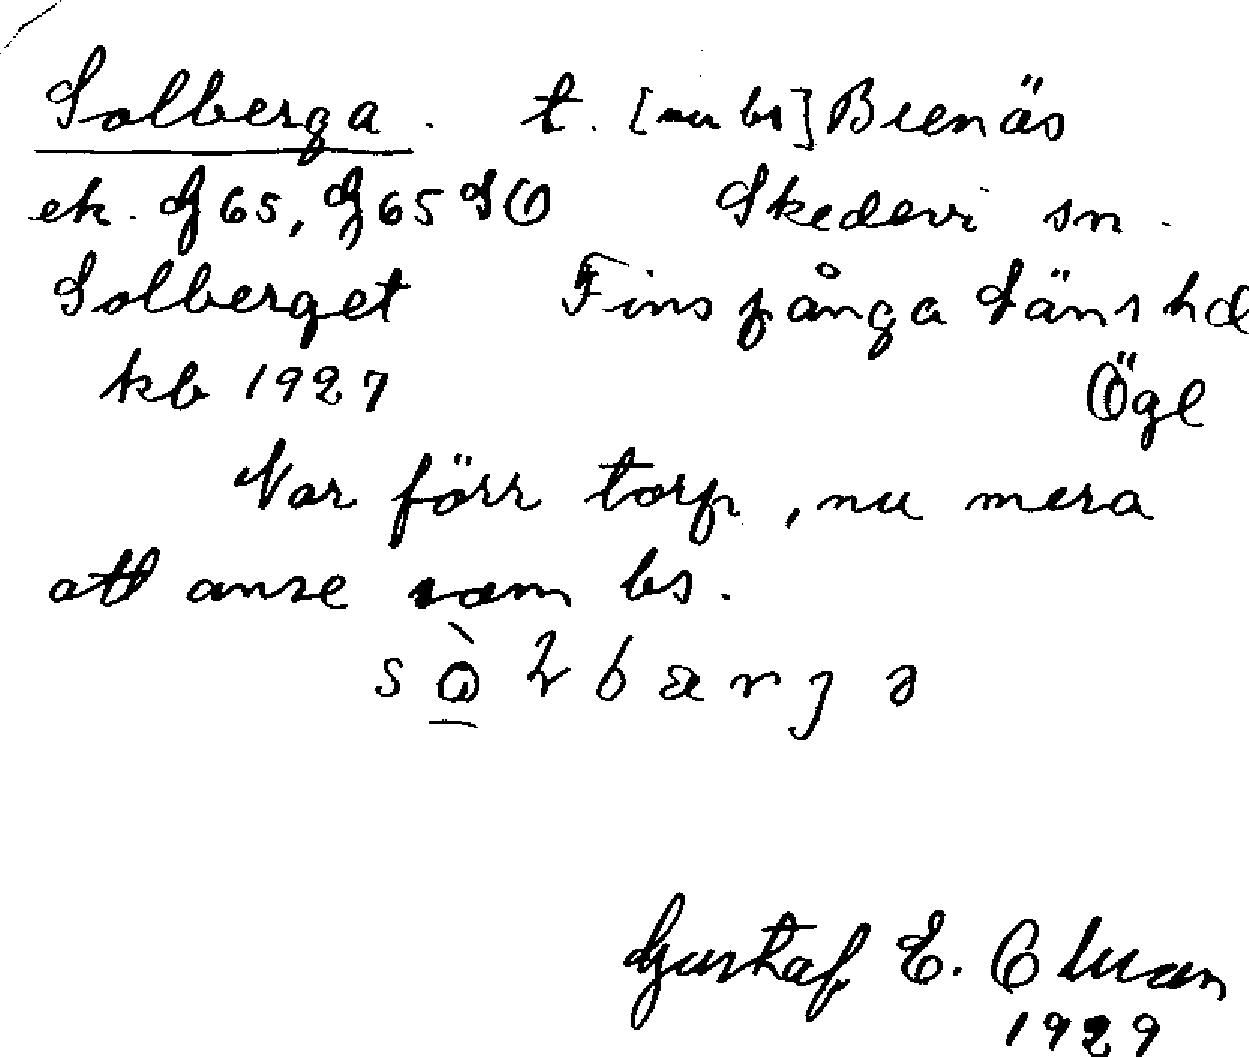 Solberga. t. [nu bs] Brenäs
ek. G 65, G 65 SO Skedevi sn.
Solberget Finspånga läns hd
kb 1927 Ögl
Var förr torp, nu mera
att anse som bs.
Gustaf E. Olsson
1929